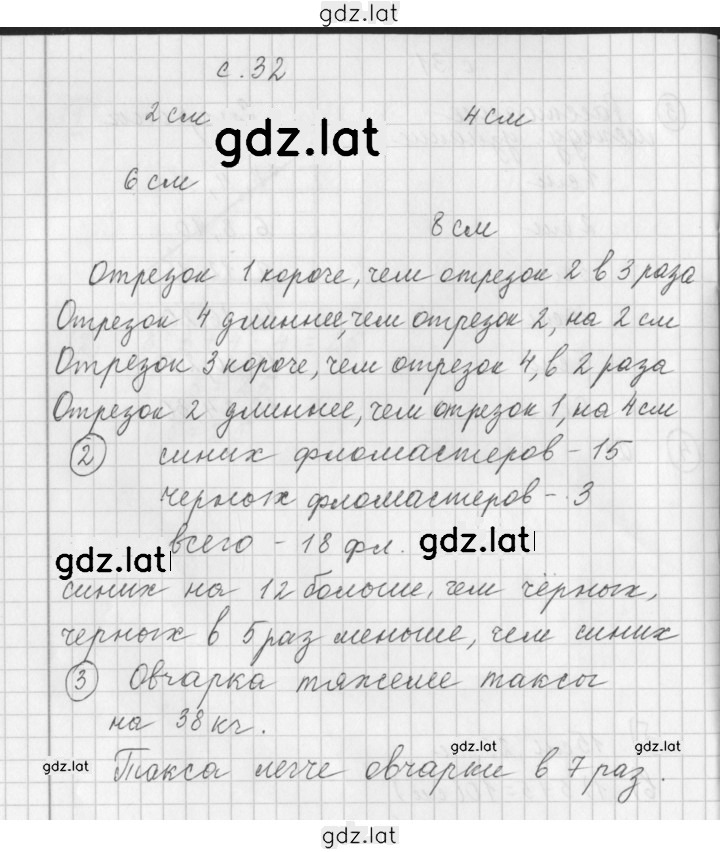 gdz.lat
с. 32
2 см 4 см
gdz.lat
6 см
8 см
Отрезок 1 короче, чем отрезок 2 в 3 раза
Отрезок 4 длиннее, чем отрезок 2, на 2 см
Отрезок 3 короче, чем отрезок 4, в 2 раза
Отрезок 2 длиннее, чем отрезок 1, на 4 см
2 синих фломастеров - 15
черных фломастеров - 3
всего - 18 фл.
gdz.lat gdz.lat
синих на 12 больше, чем чёрных,
черных в 5 раз меньше, чем синих
3 Овчарка тяжелее таксы
на 38 кг.
gdz.lat gdz.lat
gdz.lat Такса легче овчарки в 7 раз.
gdz.lat